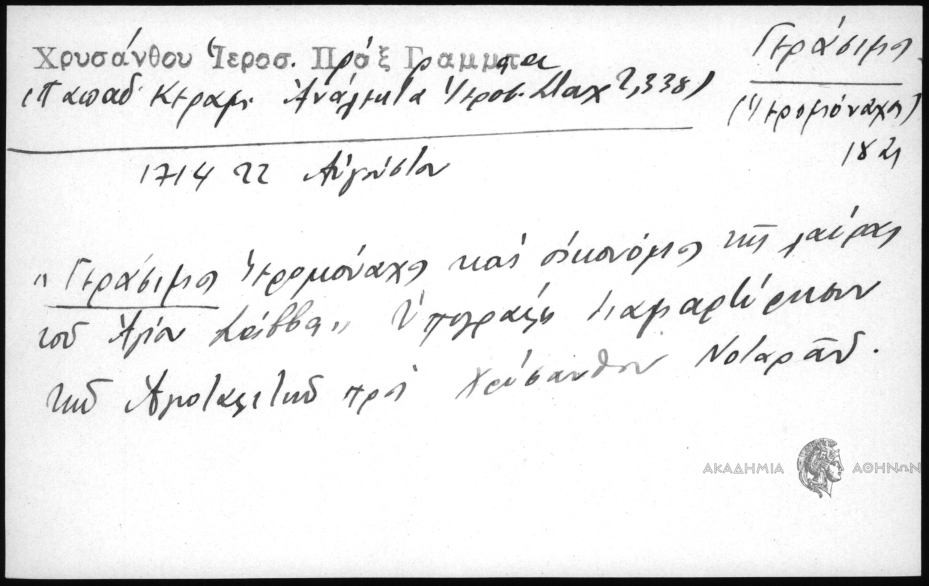 Χρυσάνθου Ἱεροσ. Πράξ Γράμματα
(Παπαδ. Κεραμ. Ἀνάλεκτα Ἱεροσ. Σταχ 2,338)
Γεράσιμος
(Ἱερομόναχος)
1714 22 Αὐγούστου
"Γεράσιμος Ἱερομόναχος καὶ οἰκονόμος τῆς λαύρας
τοῦ Ἁγίου Σάββα" Ὑπογράφει διαμαρτύρησιν
τῶν Ἁγιοταφιτῶν πρὸς Χρύσανθον Νοταρᾶν.
ΑΚΑΔΗΜΙΑ ΑΘΗΝΩΝ